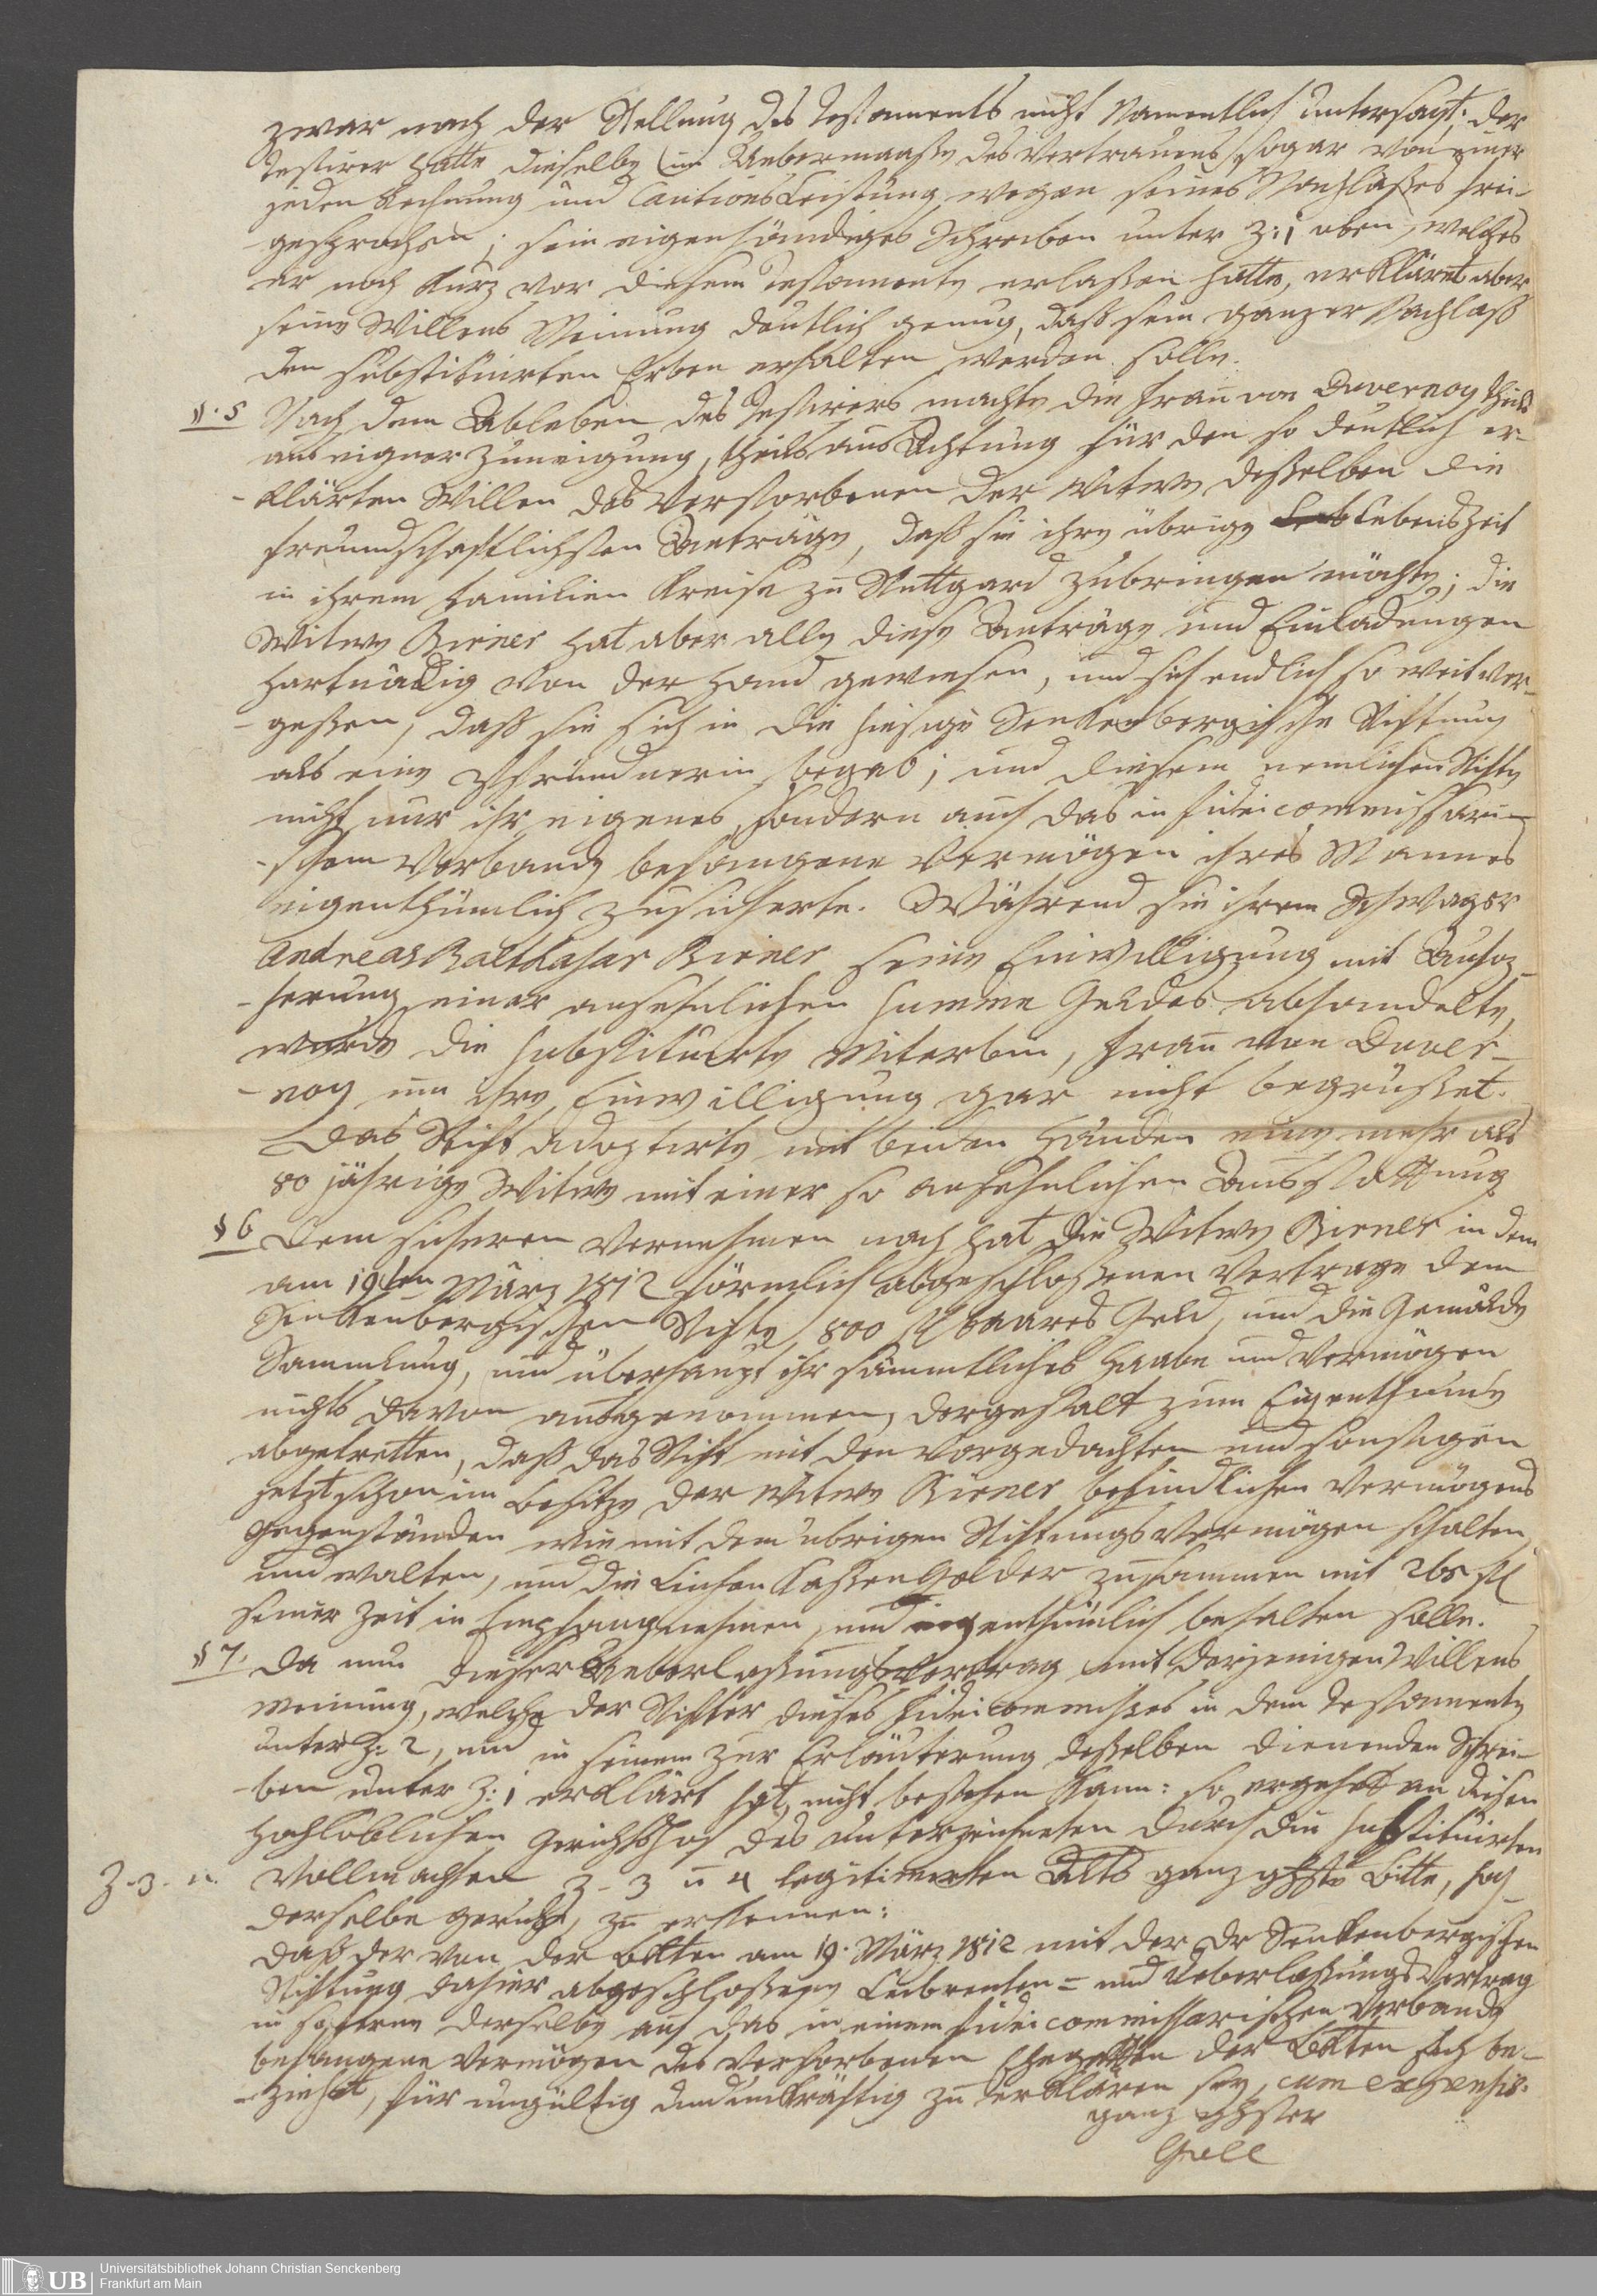 zwar nach der Stellung des Testaments nicht Namentlich untersagt; der
Testirer hatte dieselbe (im Uebermaaße des Vertrauens) sogar von einer
jeden Rechnung und Cautions Leistung wegen seines Nachlaßes frei-
gesprochen; sein eigenhändiges Schreiben unter Z: 1 oben, welches
er noch kurz vor diesem Testamente erlaßen hatte, erkläret aber
seine Willens Meinung deutlich genug, daß sein ganzer Nachlaß
den substituirten Erben erhalten werden solle.
§. 5 Nach dem Ableben des Testirers machte die Frau von Duvernoy theils
aus eigner Zuneigung, theils aus Achtung für den so deutlich er-
-klärten Willen des Verstorbenen der Witwe desselben die
freundschaftlichsten Anträge, daß sie ihre übrige Lebenszeit
in ihrem Familien Kreise zu Stuttgard zubringen möchte; die
Witwe Biener hat aber alle diese Anträge und Einladungen
hartnäckig von der Hand gewiesen, und sich endlich so weit ver-
-geßen, daß sie sich in die hiesige Senkenbergische Stiftung
als eine Pfründnerin begab; und diesem nemlichen Stifte
nicht nur ihr eigenes, sondern auch das in fideicommissari-
-schem Verbande befangene Vermögen ihres Mannes
eigenthümlich zusicherte. Während sie ihrem Schwager
Andreas Balthasar Biener seine Einwilligung mit Aufop-
-ferung einer ansehnlichen Summe Geldes abhandelte,
wurde die substituirte Miterbin, Frau von Duver-
-noy um ihre Einwilligung gar nicht begrüßet.
Das Stift adoptirte mit beiden Händen eine mehr als
80 jährige Witwe mit einer so ansehnlichen Ausstattung
§ 6 Dem sicheren Vernehmen nach hat die Witwe Biener in dem
am 19ten März 1812 förmlich abgeschloßenen Vertrage dem
Senkenbergischen Stifte, 800 fl baares Geld, und die Gemälde
Sammlung, und überhaupt ihr sämmtliches Haabe und Vermögen
nichts davon ausgenommen, dergestalt zum Eigenthume
abgetretten, daß das Stift mit den vorgedachten und sonstigen
jetzt schon im Besitze der Witwe Biener befindlichen Vermögens
Gegenständen wie mit dem übrigen Stiftungs Vermögen schalten
und walten, und die Leichen Kaßen Gelder zusammen mit 265 fl
seiner Zeit in Empfang nehmen, und eigenthümlich behalten solle.
§ 7. Da nun dieser Ueberlaßungs Vertrag mit derjenigen Willens
meinung, welche der Stifter dieses Fideicommisses in dem Testamente
unter Z: 2, und in seinem zur Erläuterung deßelben dienenden Schrei-
-ben unter Z: 1 erklärt hat, nicht bestehen kann: so ergehet an diesen
Hochloblichen Gerichtshof des unterzeichneten durch die substituirten
Z. 3. u. Vollmachten Z. 3 u 4 legitimirten Alts ganz Bitte, hoch
derselbe geruhe, zu erkennen:
daß der von der Bklten am 19. März 1812 mit der Dr Senkenbergischen
Stiftung dahier abgeschloßene Leibrenten = und Ueberlaßungs Vertrag
in soferne derselbe auf das in einem fideicommissarischen Verbande
befangene Vermögen des verstorbenen Ehegatten der Bklten sich be-
-ziehet, für ungültig und unkräftig zu erklären sey, cum expensis.
ganz
Grell
Universitätsbibliothek Johann Christian Senckenberg
Frankfurt am Main
UB